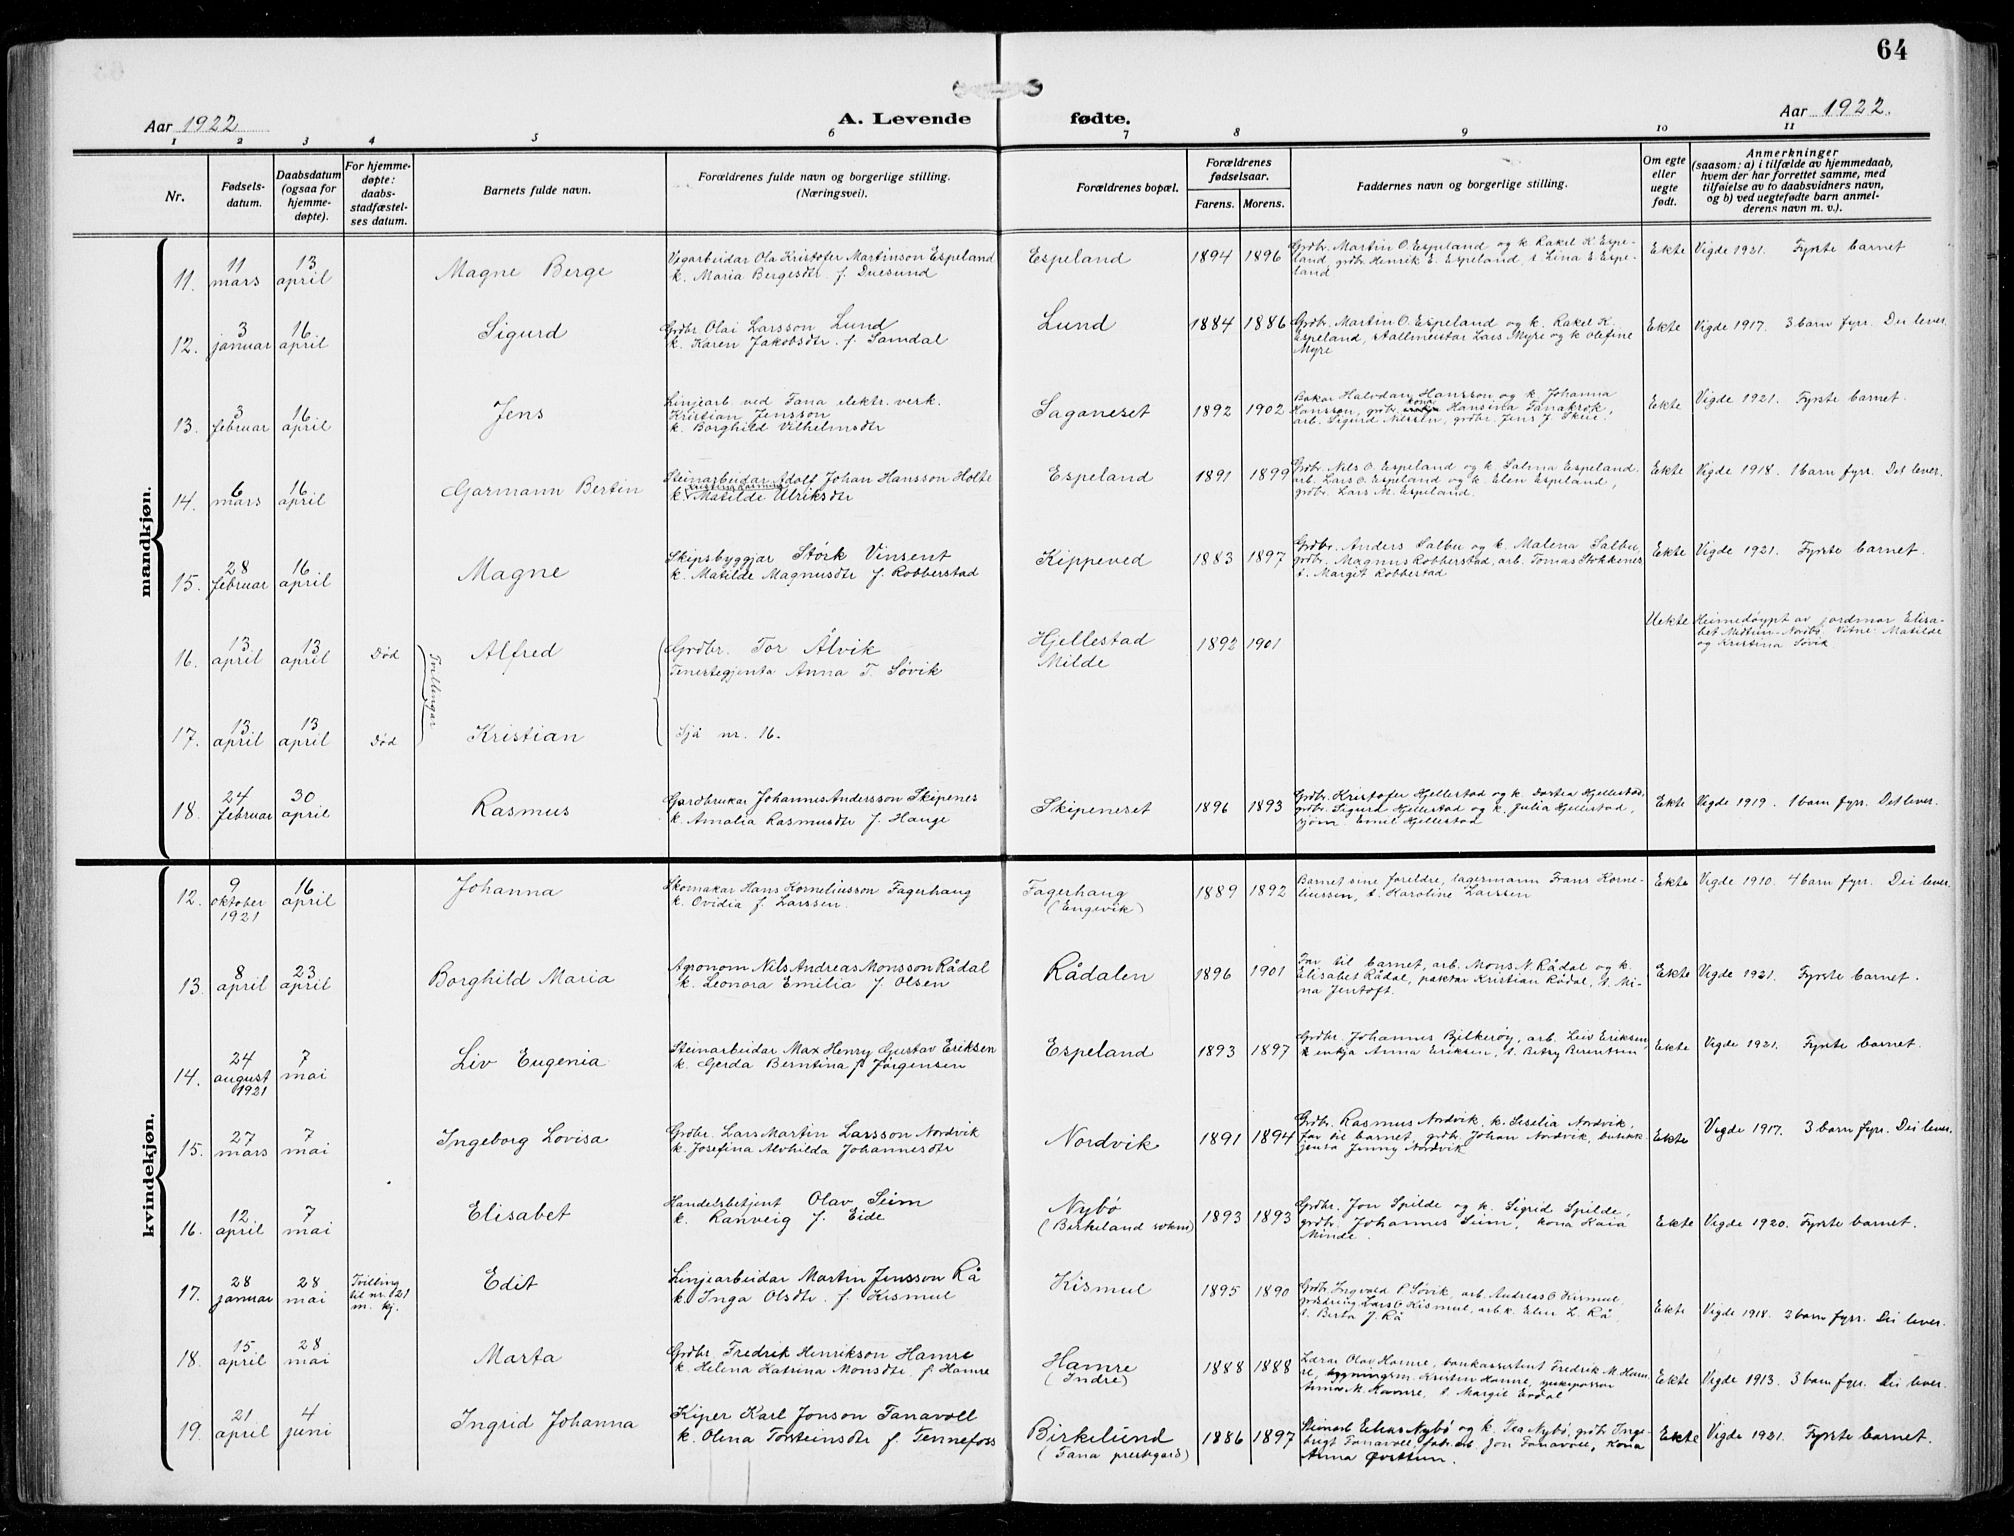 64
Aar 1922
A. Levende fødte.
Aar 1922.
1 2 3 4 5 6 7 8 9 10 11
Nr.
Fødsels-
datum.
Daabsdatum
(ogsaa for
hjemme-
døpte).
For hjemme-
døpte:
daabs-
stadfæstel-
ses datum.
Barnets fulde navn.
Forældrenes fulde navn og borgerlige stilling.
(Næringsvei).
Forældrenes bopæl.
Forældrenes
fødselsaar.
Farens. Morens.
Faddernes navn og borgerlige stilling.
Om egte
eller
uegte
født.
Anmerkninger
(saasom: a) i tilfælde av hjemmedaab,
hvem der har forrettet samme, med
tilføielse av to daabsvidners navn,
og b) ved uegtefødte barn anmel-
derens navn m. v.).
mandkjøn.
11. 11 mars 13 april
Magne Berge
Vegarbeidar Ola Kristofer Martinson Espeland
k. Maria Bergesdtr f. Duesund
Espeland 1894 1896
Grdbr. Martin O. Espeland og k. Rakel K. Espe-
land, grdbr. Henrik E. Espeland, t. Lina E. Espe-
land
Ekte Vigde 1921. Fyrste barnet
12. 3 januar 16 april
Sigurd
Grdbr. Olai Larsson Lund
k. Karen Jakobsdtr. f. Samdal
Lund 1884 1886
Grdbr. Martin O. Espeland og k. Rakel K.
Espeland, Stallmeistar Lars Myre og k. Olefine
Myre
Ekte Vigde 1917. 3 barn fyrr. Dei lever.
13. 3 februar 16 april
Jens
Linjearb. ved Fana elektr. verk.
Kristian Jensson
k. Borghild Vilhelmsdtr
Saganeset 1892 1902
Bakar Halvdan Hansson og k. Johanna
Hansson, grdbr. kona Hansina Fanakrok,
arb. Sigurd Nilssen, grdbr. Jens J. Skeie.
Ekte Vigde 1921. Fyrste barnet.
14. 6 mars 16 april
Garmann Bertin
Steinarbeidar Adolf Johan Hansson Holte
k. Matilde Ulriksdtr
Espeland 1891 1899
Grdbr. Nils O. Espeland og k. Salma Espeland.
arb. Lars O. Espeland og k. Elen Espeland,
grdbr. Lars M. Espeland.
Ekte Vigde 1918. 1 barn fyrr. Det lever.
15. 28 februar 16 april
Magne
Skipsbyggjar Störk Vinsent
k. Matilde Magnusdtr f. Robberstad
Kippeved 1883 1897
Grdbr. Anders Salbu og k. Malena Salbu,
grdbr. Magnus Robberstad, arb. Tomas Stokkenes,
t. Margit Robberstad
Ekte Vigde 1921. Fyrste barnet.
16. 13 april 13 april Död
Tvillingar
Alfred
Grdbr. Tor Ålvik
Tenestegjenta Anna T. Søvik
Hjellestad
Milde
1892 1901
Uekte Heimedøypt av jordmor Elisa-
bet Midtun-Nordbö. Vitne: Matilde
og Kristina Søvik
17. 13 april 13 april Död
Kristian
Sjå nr. 16.
18. 24 februar 30 april
Rasmus
Gardbrukar Johannes Andersson Skipenes
k. Amalia Rasmusdtr f. Hauge
Skipeneset 1896 1893
Grdbr. Kristofer Hjellestad og k. Dortea Hjellestad,
grdbr. Sigurd Hjellestad og k. Julia Hjellestad,
sjøm. Emil Hjellestad
Ekte Vigde 1919. 1 barn fyrr. Det lever.
kvindekjøn.
12. 9 oktober 1921 16 april
Johanna
Skomakar Hans Korneliusson Fagerhaug
k. Ovidia f. Larssen.
Fagerhaug
(Engevik)
1889 1892
Barnet sine foreldre, lagermann Frans Korne-
liussen, t. Karoline Larssen
Ekte Vigde 1910. 4 barn fyrr. Dei lever.
13. 8 april 23 april
Borghild Maria
Agronom Nils Andreas Monsson Rådal
k. Leonora Emilia f. Olsen
Rådalen 1896 1901
Far til barnet, arb. Mons N. Rådal og k.
Elisabet Rådal, paktar Kristian Rådal, t. Mi-
na Jentoft.
Ekte Vigde 1921. Fyrste barnet.
14. 24 august 1921 7 mai
Liv Eugenia
Steinarbeidar Max Henry Gustav Eriksen
k. Gerda Berntina f. Jørgensen
Espeland 1893 1897
Grdbr. Johannes Bjelkerøy, arb. Leiv Eriksen,
enkja Anna Eriksen, t. Betsy Berentsen
Ekte Vigde 1921. Fyrste barnet.
15. 27 mars 7 mai
Ingeborg Lovisa
Grdbr. Lars Martin Larsson Nordvik
k. Josefina Alvhilda Johannesdtr
Nordvik 1891 1894
Grdbr. Rasmus Nordvik, k. Seselia Nordvik,
far til barnet, grdbr. Johan Nordvik, butikk-
gjenta Jenny Nordvik
Ekte Vigde 1917. 3 barn fyrr. Dei lever.
16. 12 april 7 mai
Elisabet
Handelsbetjent Olav Seim
k. Ranveig f. Eide
Nybø
(Birkeland sokn)
1893 1893
Grdbr. Jon Spilde og k. Sigrid Spilde,
grdbr. Johannes Seim, kona Kaia
Minde.
Ekte Vigde 1920. Fyrste barnet.
17. 28 januar 28 mai
Tvilling
til nr. 21
m. kj.
Edit
Linjearbeidar Martin Jensson Rå
k. Inga Olsdtr. f. Kismul
Kismul 1895 1890
Grdbr. Ingvald P. Søvik, arb. Andreas O. Kismul,
Lars O. Kismul, arb.k. Elen L. Rå,
t. Berta J. Rå
Ekte Vigde 1918. 2 barn fyrr. Dei lever.
18. 15 april 28 mai
Marta
Grdbr. Fredrik Henrikson Hamre
k. Helena Katrina Monsdtr. f. Hamre
Hamre
(Indre)
1888 1888
Lærar Olav Hamre, bankassistent Fredrik M. Ham-
re, Kristin Hamre,
Anna M. Hamre, t. Margit Evdal
Ekte Vigde 1913. 3 barn fyrr. Dei lever.
19. 21 april 4 juni
Ingrid Johanna
Kiper Karl Jonson Fanavoll
k. Olena Torsteinsdtr f. Tennefoss
Birkelund
(Fana prestegard)
1886 1897
Steinarb. Elias Nybø og k. Tea Nybø, grdbr. Inge-
brigt Fanavoll, fabr.arb. Jon Fanavoll, kona
Anna Øvsttun.
Ekte Vigde 1921. Fyrste barnet.